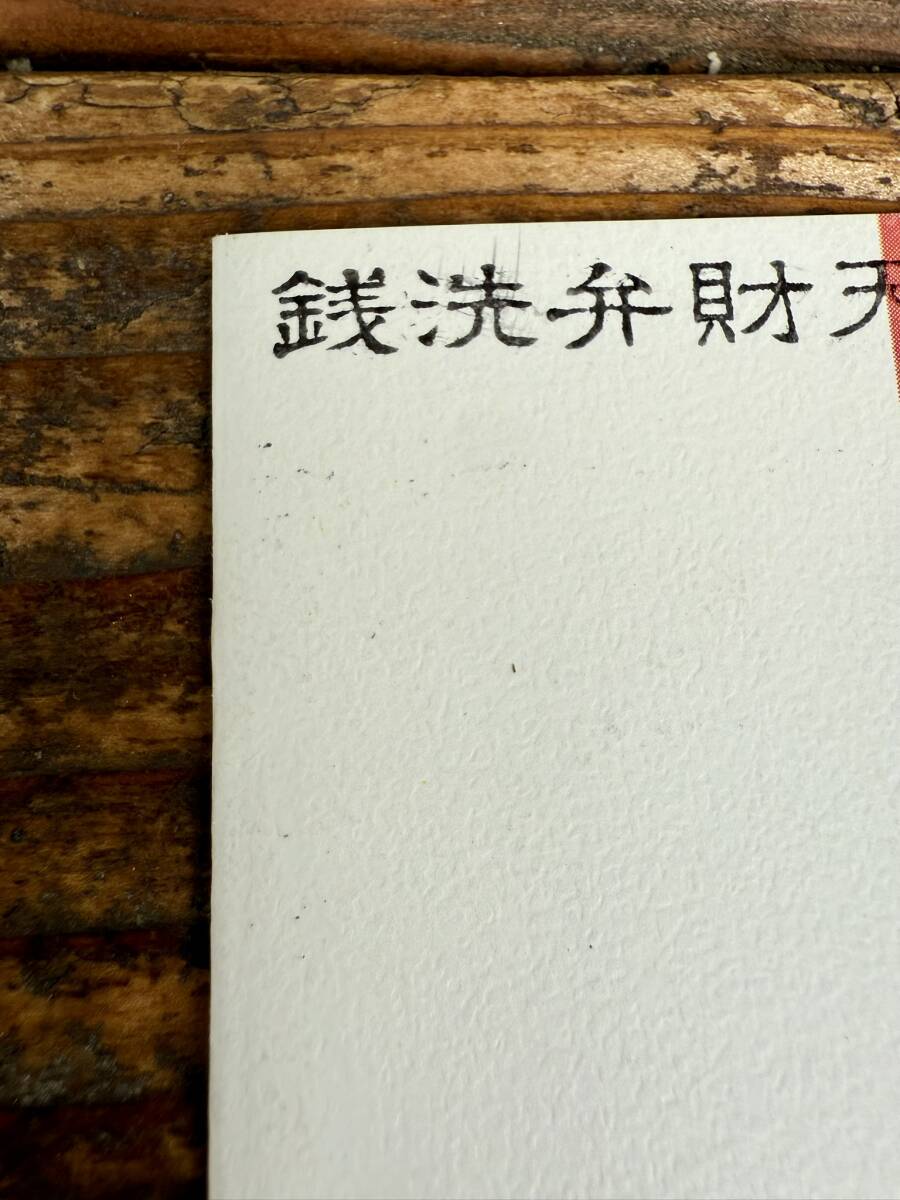 銭洗弁財天